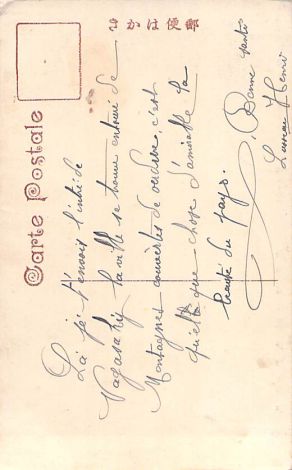 きかは便郵
Carte Postale
Là je t'envois l'entrée de
Nagasaky la ville se trouve entouré de
Montagnes couvertes de verdure, c'est
quelque chose d'admirable la
beauté du pays.
Bonne santé
Henri